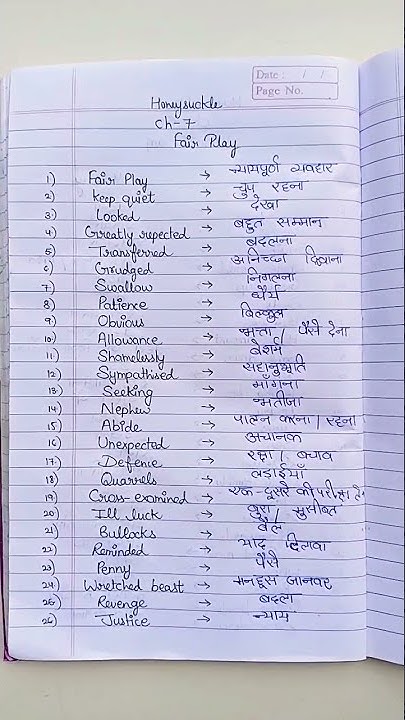 Date : / /
Page No.
Honeysuckle
Ch-7
Fair Play
1) Fair Play → न्यायपूर्ण व्यवहार
2) keep quiet → चुप रहना
3) Looked → देखा
4) Greatly respected → बहुत सम्मान
5) Transferred → बदलना
6) Grudged → अनिच्छा दिखाना
7) Swallow → निगलना
8) Patience → धैर्य
9) Obvious → बिल्कुल
10) Allowance → भत्ता / पैसे देना
11) Shamelessly → बेशर्म
12) Sympathised → सहानुभूति
13) Seeking → माँगना
14) Nephew → भतीजा
15) Abide → पालन करना / रहना
16) Unexpected → अचानक
17) Defence → रक्षा / बचाव
18) Quarrels → लड़ाईयाँ
19) Cross-examined → एक-दूसरे की परीक्षा
20) Ill luck → बुरा / मुसीबत
21) Bullocks → बैल
22) Reminded → याद दिलवा
23) Penny → पैसे
24) Wretched beast → मनहूस जानवर
25) Revenge → बदला
26) Justice → न्याय